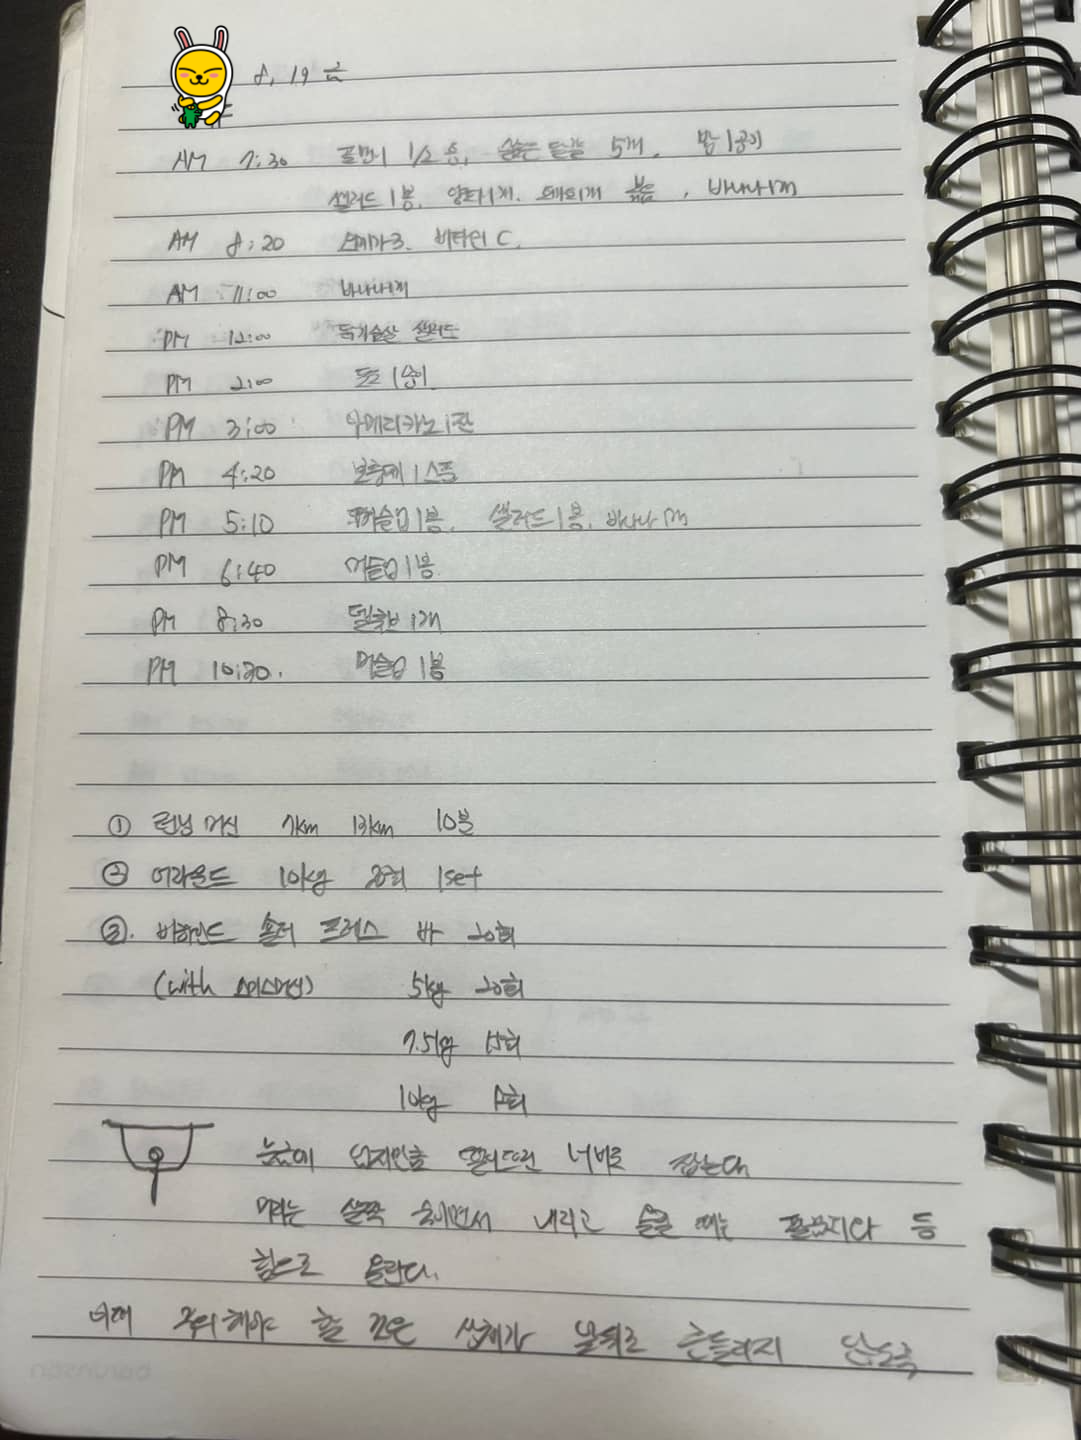 8. 19 금
AM 7:30 1/2 삶은 달걀 5개. 밥 1공기
샐러드 1봉. 바나나 1개
AM 8:20 오메가3. 비타민 C.
AM 11:00 바나나 1개
PM 12:00 닭가슴살 샐러드
PM 2:00 포도 1송이
PM 3:00 아메리카노 1잔
PM 4:20 보충제 1스푼
PM 5:10 1봉. 샐러드 1봉. 바나나 1개
PM 6:40 머슬업 1봉.
PM 8:30 1개
PM 10:20. 머슬업 1봉
① 런닝 머신 7km 13km 10분
② 어라운드 10kg 20회 1set
③. 비하인드 숄더 프레스 바 20회
(with 스미스머신) 5kg 20회
7.5kg 15회
10kg 12회
너비로 잡는다
머리는 살짝 숙이면서 내리고 올릴 때는 팔꿈치와 등
힘으로 올린다.
이때 주의해야 할 점은 상체가 앞뒤로 흔들리지 않도록